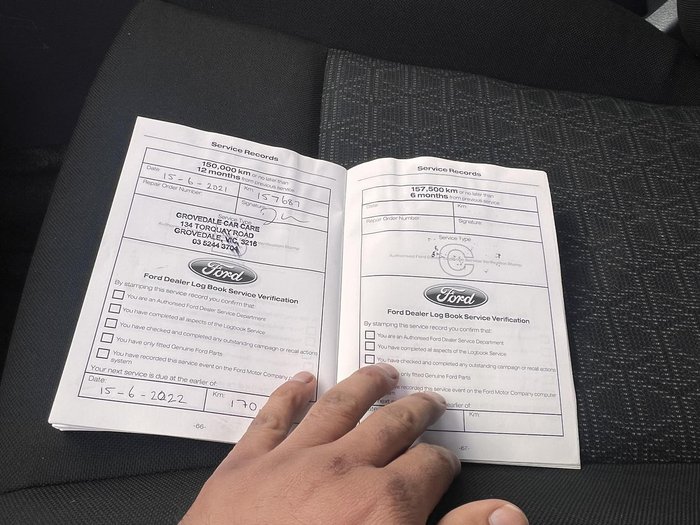 Service Records
150,000 km or no later than
12 months from previous service.
Date: 15-6-2021
Km: 157687
Repair Order Number:
Signature:
Service Type
GROVEDALE CAR CARE
134 TORQUAY ROAD
GROVEDALE, VIC, 3216
03 5244 3704
Ford
Ford Dealer Log Book Service Verification
By stamping this service record you confirm that:
You are an Authorised Ford Dealer Service Department
You have completed all aspects of the Logbook Service
You have checked and completed any outstanding campaign or recall actions
You have only fitted Genuine Ford Parts
You have recorded this service event on the Ford Motor Company computer
system
Your next service is due at the earlier of:
Date: 15-6-2022
Km: 170
-66-
Service Records
157,500 km or no later than
6 months from previous service.
Date:
Km:
Repair Order Number:
Signature:
Service Type
C
Ford
Ford Dealer Log Book Service Verification
By stamping this service record you confirm that:
You are an Authorised Ford Dealer Service Department
You have completed all aspects of the Logbook Service
You have checked and completed any outstanding campaign or recall actions
only fitted Genuine Ford Parts
recorded this service event on the Ford Motor Company computer
earlier of:
Km:
-67-